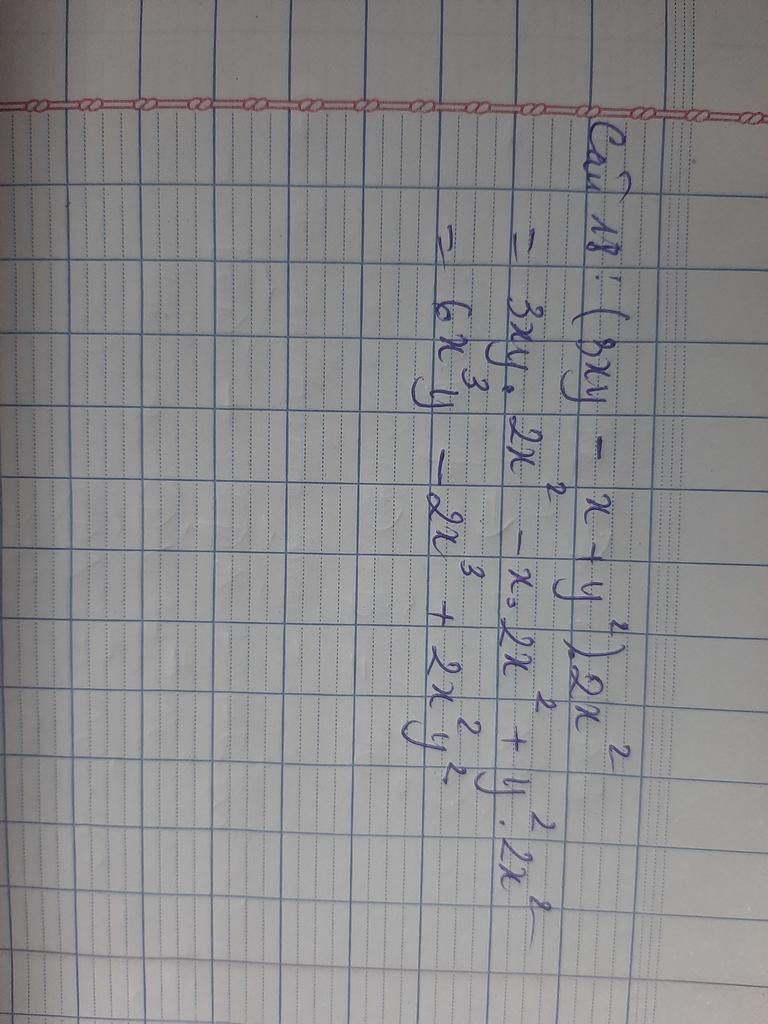 Câu 18: (3xy - x + y²).2x²
= 3xy. 2x² - x. 2x² + y². 2x²
= 6x³y - 2x³ + 2x²y²